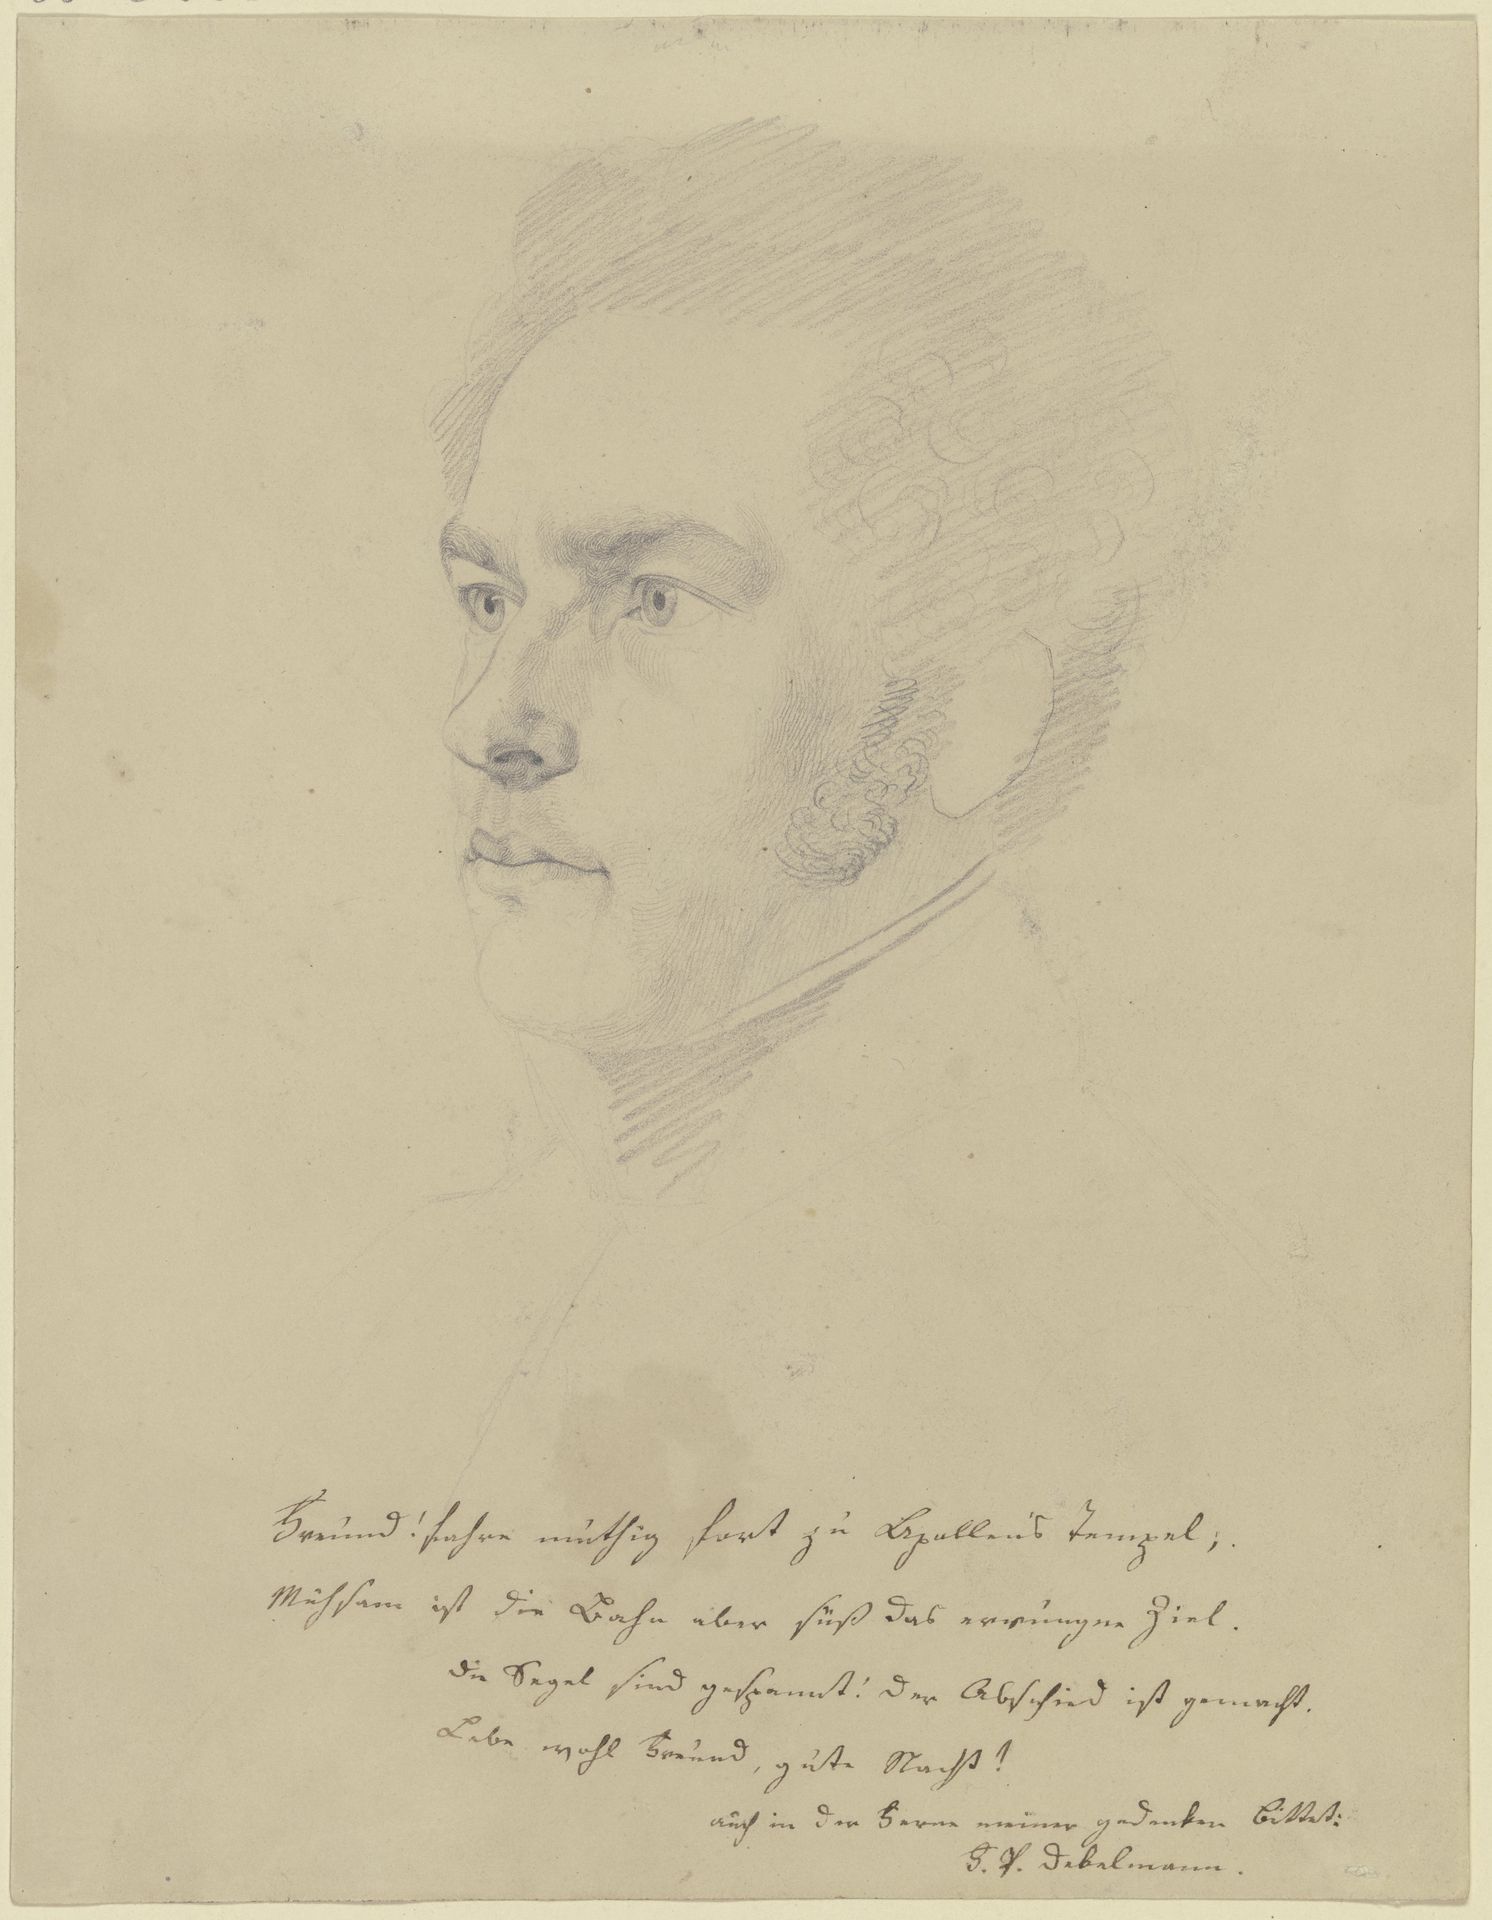 Freund! fahre muthig fort zu Apollen's Tempel;.
Mühsam ist die Bahn aber süß das errungne Ziel.
die Segel sind gespannt! der Abschied ist gemacht.
Lebe wohl Freund, gute Nacht!
auch in der Ferne meiner gedenken bittet:
F. P. Debelmann.